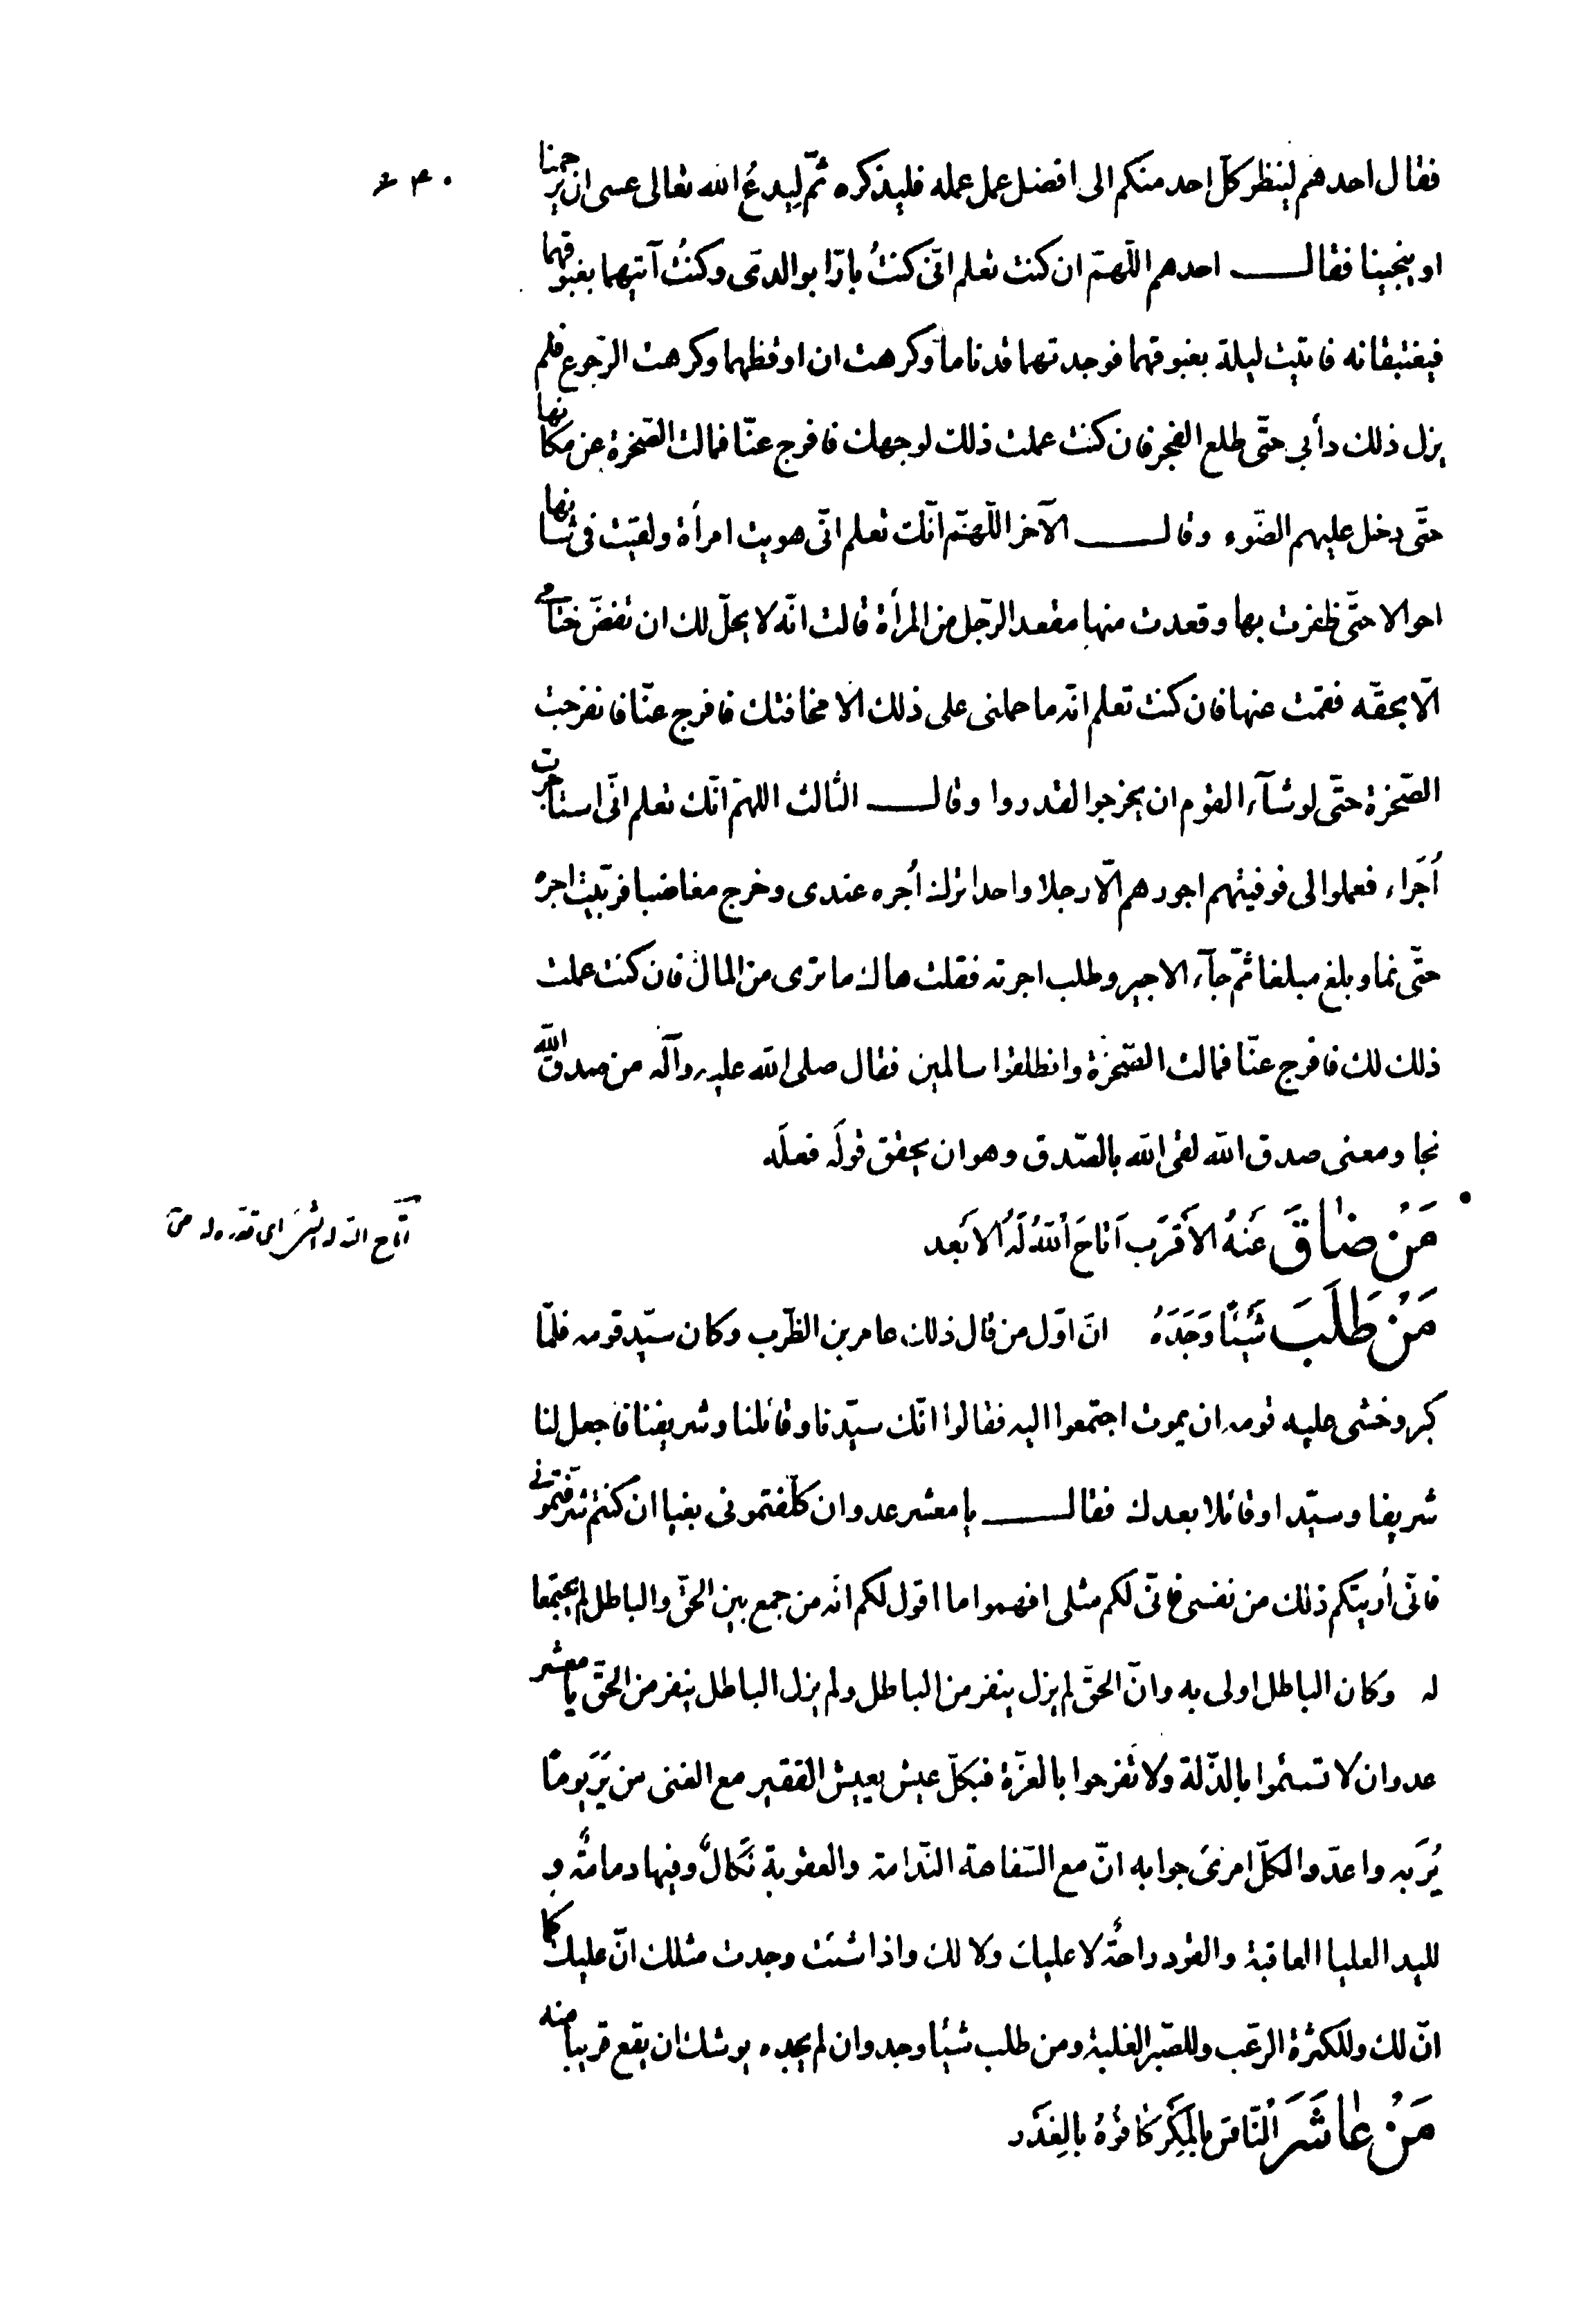 فقال احدهم لينظر كلّ احد منكم الى افضل عمل عمله فليذكره ثمّ لِيدعُ الله تعالى عسى ان يرحمنا
او ينجينا فقال احدهم اللّهمّ ان كنت تعلم انّى كنتُ بارّا بوالدىّ وكنتُ آتيهما بغبوقهما
فيغتبقانه فاتيت ليلة بغبوقهما فوجدتهما قد ناما وكرهت ان اوقظهما وكرهت الرّجوع فلم
يزل ذلك دأبي حتّى طلع الفجر فان كنت عملت ذلك لوجهك فافرج عنّا فمالت الصّخرة عن مكانها
حتّى دخل عليهم الضّوء وقال الآخر اللّهمّ انّك تعلم انّى هويت امرأة ولقيت فى شانها
احوالا حتّى ظفرت بها وقعدت منها مقعد الرّجل من المرأة قالت انّه لا يحلّ لك ان تفضّ ختامى
الّا بحقّه فقمت عنها فان كنت تعلم انّه ما حملنى على ذلك الا مخافتك فافرج عنّا فانفرجت
الصّخرة حتّى لو شآء القوم ان يخرجوا لقدروا وقال الثالث اللهمّ انّك تعلم انّى استاجرت
أُجَراء فعملوا لى فوفيتهم اجورهم الّا رجلا واحدا ترك أجره عندى وخرج مغاضبا فربّيت اجره
حتّى نما وبلغ مبلغا ثمّ جآء الاجير وطلب اجرته فقلت هاك ما ترى من المال فان كنت عملت
ذلك لك فافرج عنّا فمالت الصّخرة وانطلقوا سالمين فقال صلى الله عليه وآله من صدق اللّه
نجا ومعنى صدق الله لقى الله بالصّدق وهو ان يحقق قولَه فعلَه
مَنْ ضٰاقَ عَنْهُ الأَقرَب اَتاحَ اللهُ لَهُ الاَبعد
اَتاح الله له الشَر اى قدّره له
مَنْ طَلَبَ شَيْئًا وَجَدَهُ انّ اوّل من قال ذلك عامر بن الظّرب وكان سيّد قومه فلمّا
كبر وخشى عليه قومه ان يموت اجتمعوا اليه فقالوا انّك سيّدنا وقائلنا وشريفنا فاجعل لنا
شريفا وسيّدا وقائلا بعدك فقال يا معشر عدوان كلّفتمونى بغيا ان كنتم شرّفتمونى
فانّى أريتكم ذلك من نفسى فانّى لكم مثلى افهموا ما اقول لكم انّه من جمع بين الحقّ والباطل لم يجتمعا
له وكان الباطل اولى به وانّ الحقّ لم يزل ينفر من الباطل ولم يزل الباطل ينفر من الحقّ يا معشر
عدوان لا تشمتوا بالذّلة ولا تفرحوا بالعزّة فبكلّ عيش يعيش الفقير مع الغنى من يَرَ يومًا
يُرَ به واعدّوا لكلّ امرئ جوابه انّ مع السّفاهة النّدامة والعقوبة نَكالٌ وفيها دمامةٌ و
لليد العليا العاقبة والقود راحةٌ لا عليك ولا لك واذا شئت وجدت مثلك انّ عليك كما
انّ لك وللكثرة الرّعب وللصّبر الغلبة ومن طلب شيئا وجد وان لم يجده يوشك ان يقع قريبا منه
مَنْ عٰاشَرَ النّاسَ بالمَكْرِ كافَؤهُ بالغَدْر